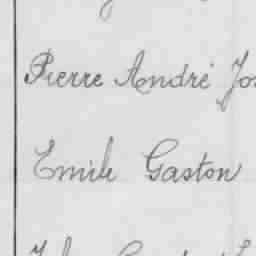 Pierre André Jos
Emile Gaston